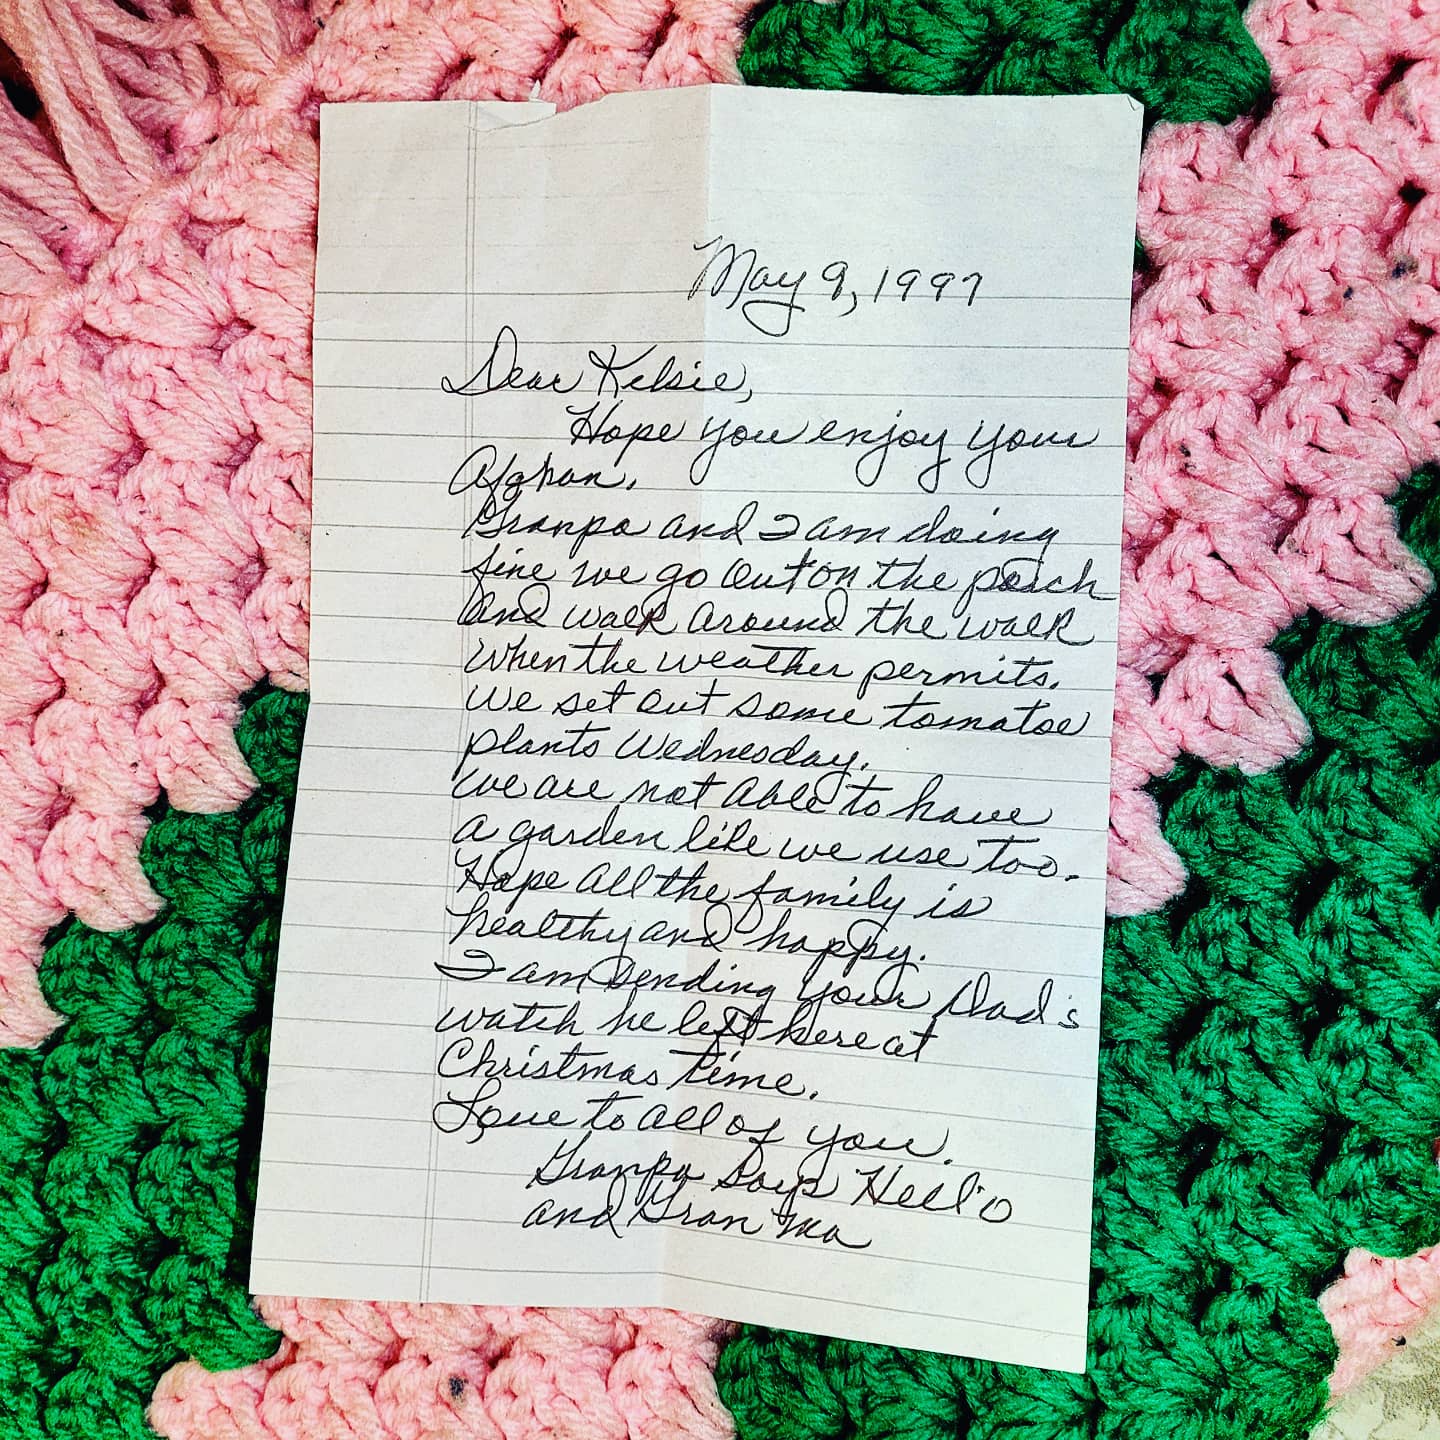 May 9, 1997
Dear Kelsie,
Hope you enjoy your
Afghan.
Granpa and I am doing
fine we go out on the porch
and walk around the walk
when the weather permits.
We set out some tomatoe
plants Wednesday.
We are not able to have
a garden like we use too.
Hope all the family is
healthy and happy.
I am sending your Dad's
watch he left here at
Christmas time.
Love to all of you.
Granpa says Hell'o
and Gran ma